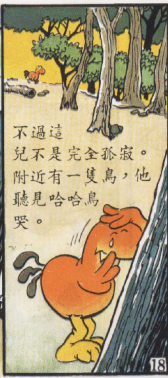 不過這
兒不是完全孤寂。
附近有一隻鳥，他
聽見哈哈鳥
哭。
18